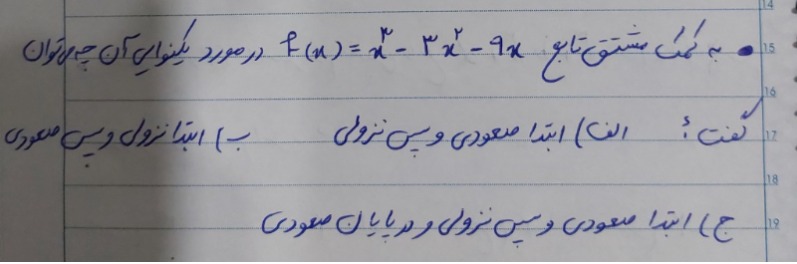 14
15
• به کمک مشتق تابع f(x) = x³ - ۳x² - ۹x در مورد یکنوایی آن چه می‌توان
16
17
گفت؟ الف) ابتدا صعودی و سپس نزولی ب) ابتدا نزولی و سپس صعودی
18
19
ج) ابتدا صعودی و سپس نزولی و در پایان صعودی